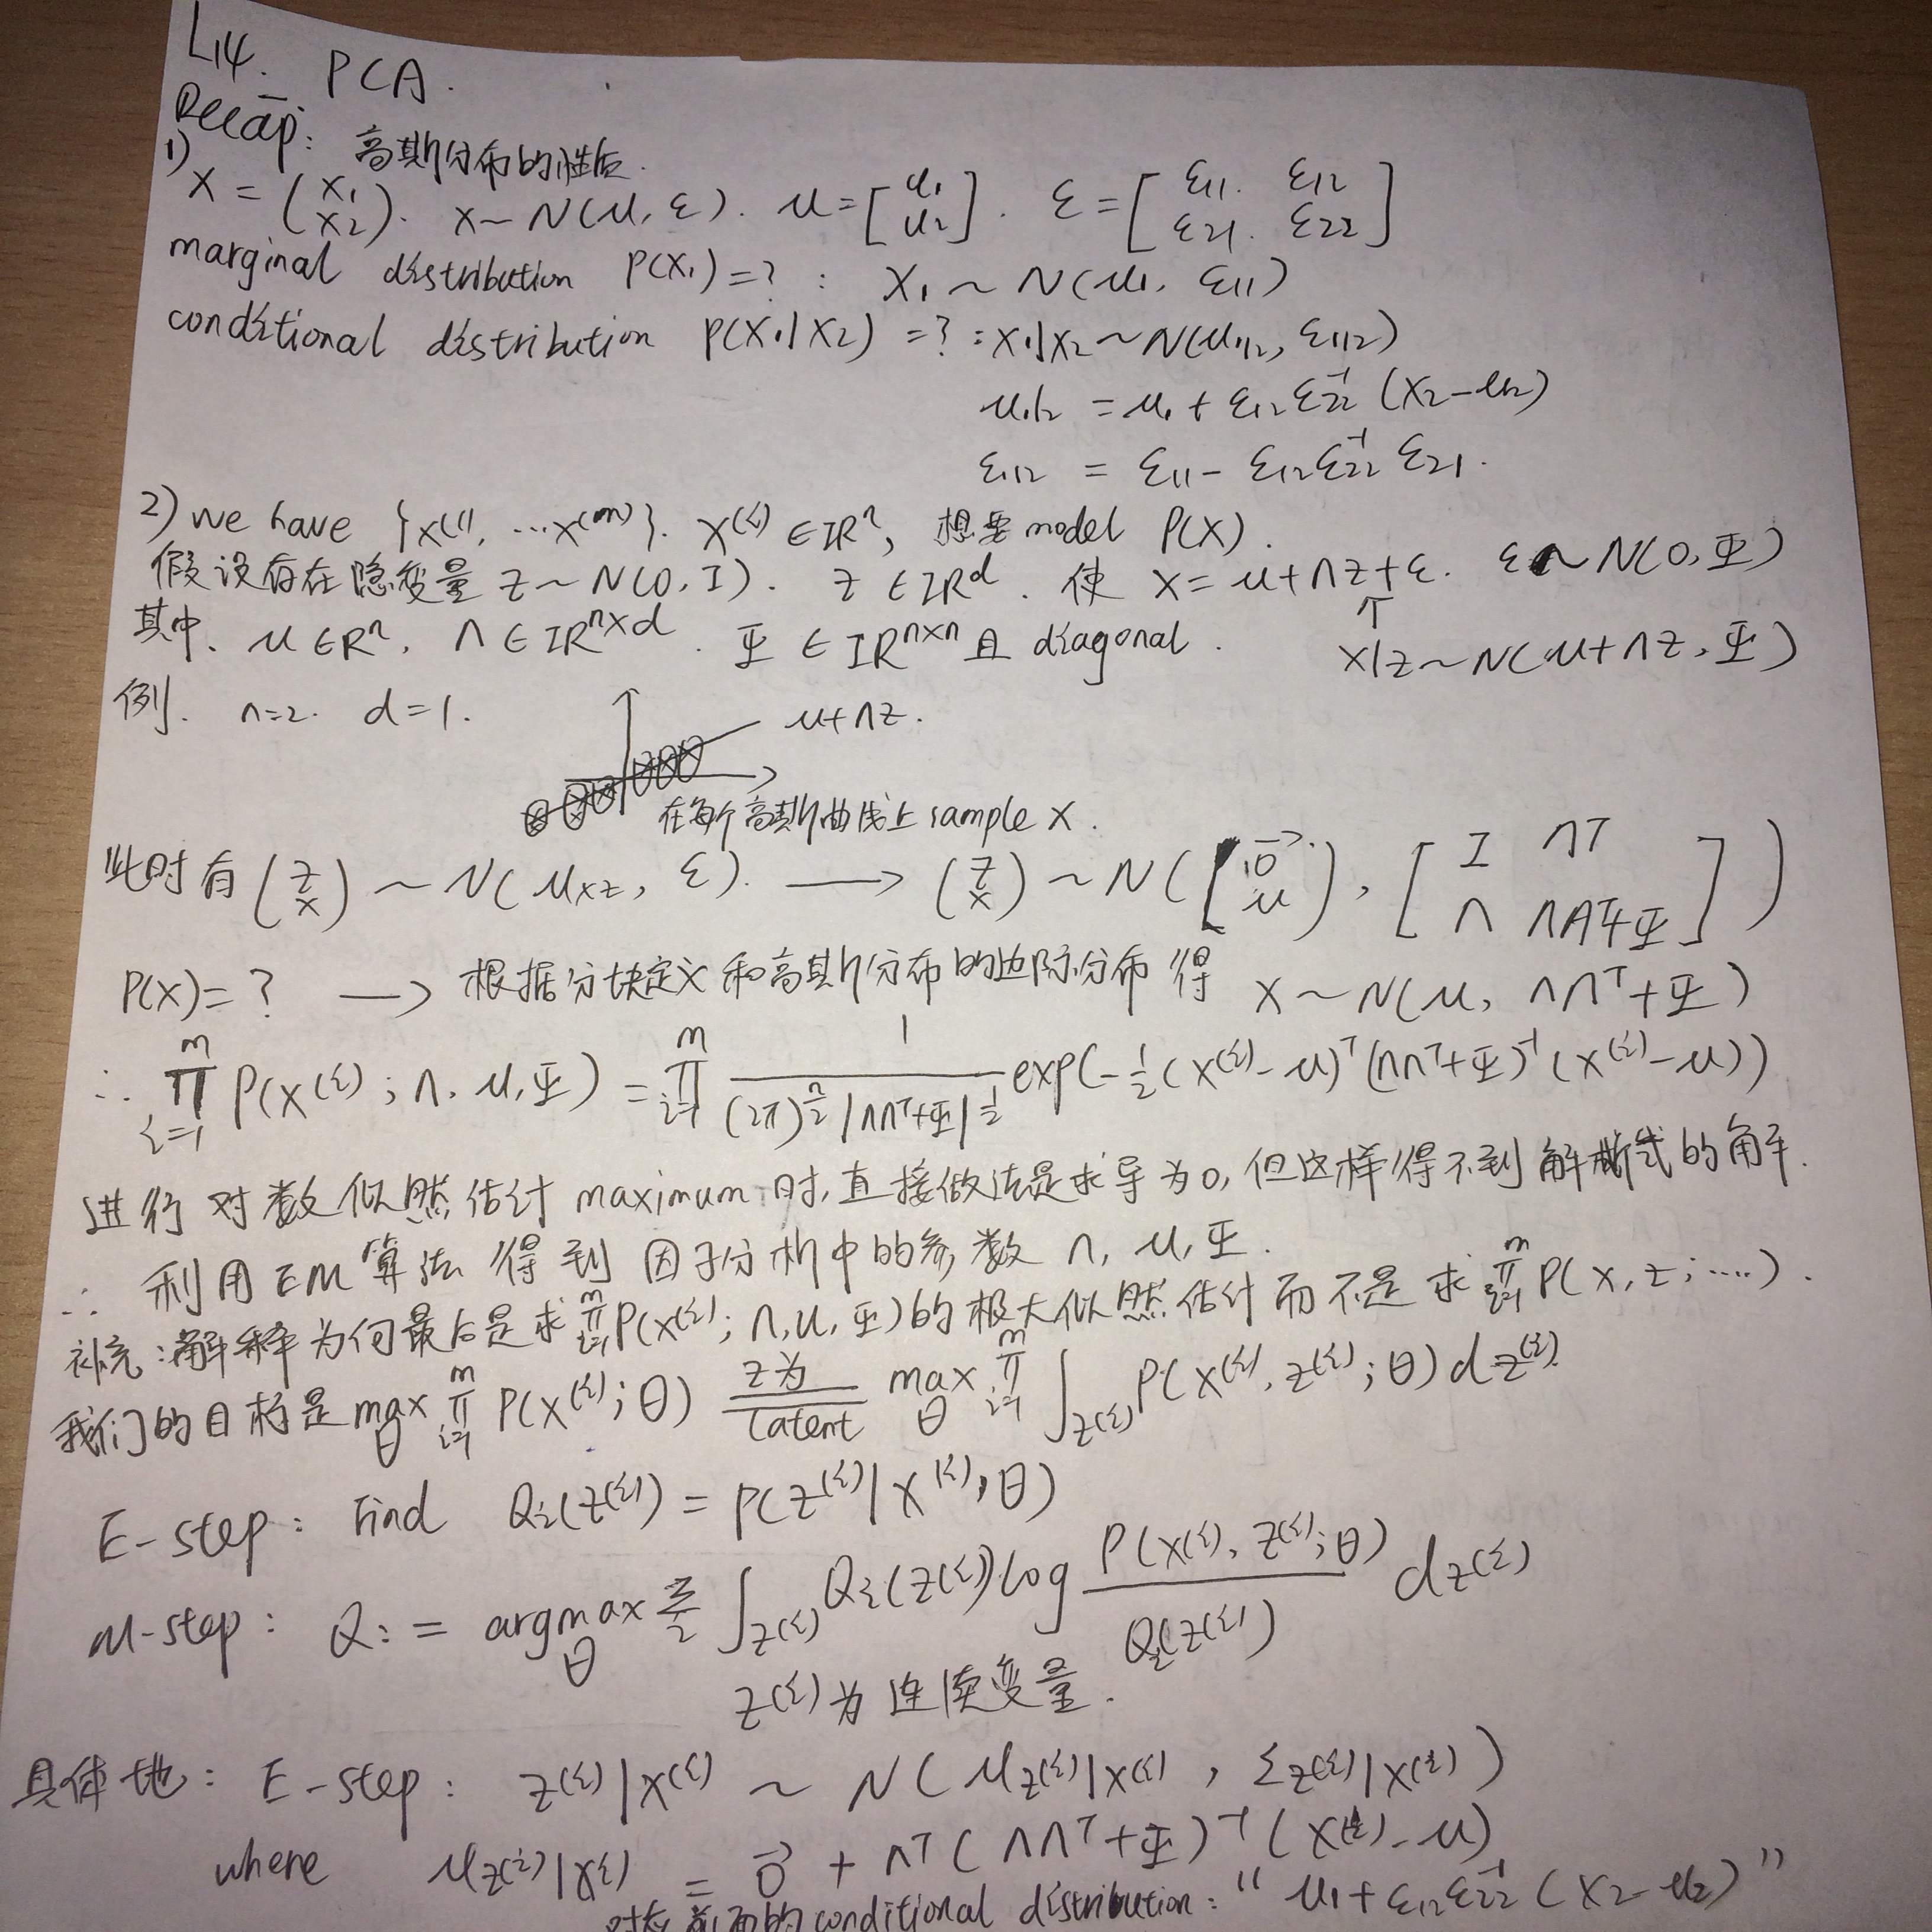 L14. PCA.
Recap: 高斯分布的性质.
1) X = (x1 x2). x~N(μ, Σ). μ=[μ1 μ2]. Σ=[Σ11. Σ12 Σ21. Σ22]
marginal distribution P(x1)=? : x1 ~ N(μ1, Σ11)
conditional distribution P(x1|x2) =? : x1|x2 ~ N(μ1|2, Σ1|2)
μ1|2 = μ1 + Σ12 Σ22^-1 (x2-μ2)
Σ1|2 = Σ11 - Σ12 Σ22^-1 Σ21.
2) we have {x^(1), ...x^(m)}. x^(i) ∈ IR^n, 想要 model P(X).
假设存在隐变量 z~N(0, I). z ∈ IR^d. 使 x = μ+Λz+ε. ε~N(0, Ψ)
其中. μ∈R^n, Λ∈IR^n×d. Ψ∈IR^n×n 且 diagonal. x|z~N(μ+Λz, Ψ)
例. n=2. d=1. μ+Λz.
在每个高斯曲线上 sample x.
此时有 (z x) ~ N(μxz, Σ). → (z x) ~ N([0⃗ μ], [I Λ^T Λ ΛΛ^T+Ψ])
P(x)=? → 根据分块定义和高斯分布的边际分布得 x~N(μ, ΛΛ^T+Ψ)
∴ ∏_{i=1}^m P(x^(i); Λ, μ, Ψ) = ∏_{i=1}^m 1/((2π)^(n/2) |ΛΛ^T+Ψ|^(1/2)) exp(-1/2 (x^(i)-μ)^T (ΛΛ^T+Ψ)^-1 (x^(i)-μ))
进行对数似然估计 maximum 时, 直接做法是求导为0, 但这样得不到解析式的解.
∴ 利用EM算法得到因子分析中的参数 Λ, μ, Ψ.
补充: 解释为何最后是求 ∏_{i=1}^m P(x^(i); Λ, μ, Ψ) 的极大似然估计而不是求 ∏_{i=1}^m P(x, z; ....).
我们的目标是 max_θ ∏_{i=1}^m P(x^(i); θ) z为 latent = max_θ ∏_{i=1}^m ∫_{z^(i)} P(x^(i), z^(i); θ) dz^(i).
E-step: Find Qi(z^(i)) = P(z^(i)|x^(i); θ)
M-step: Q := argmax_θ Σ_i ∫_{z^(i)} Qi(z^(i)) log P(x^(i), z^(i); θ)/Qi(z^(i)) dz^(i)
z^(i)为连续变量.
具体地: E-step: z^(i)|x^(i) ~ N(μz^(i)|x^(i), Σz^(i)|x^(i))
where μz^(i)|x^(i) = 0⃗ + Λ^T(ΛΛ^T+Ψ)^-1 (x^(i)-μ)
对应前面的 conditional distribution: "μ1+Σ12Σ22^-1 (x2-μ2)"